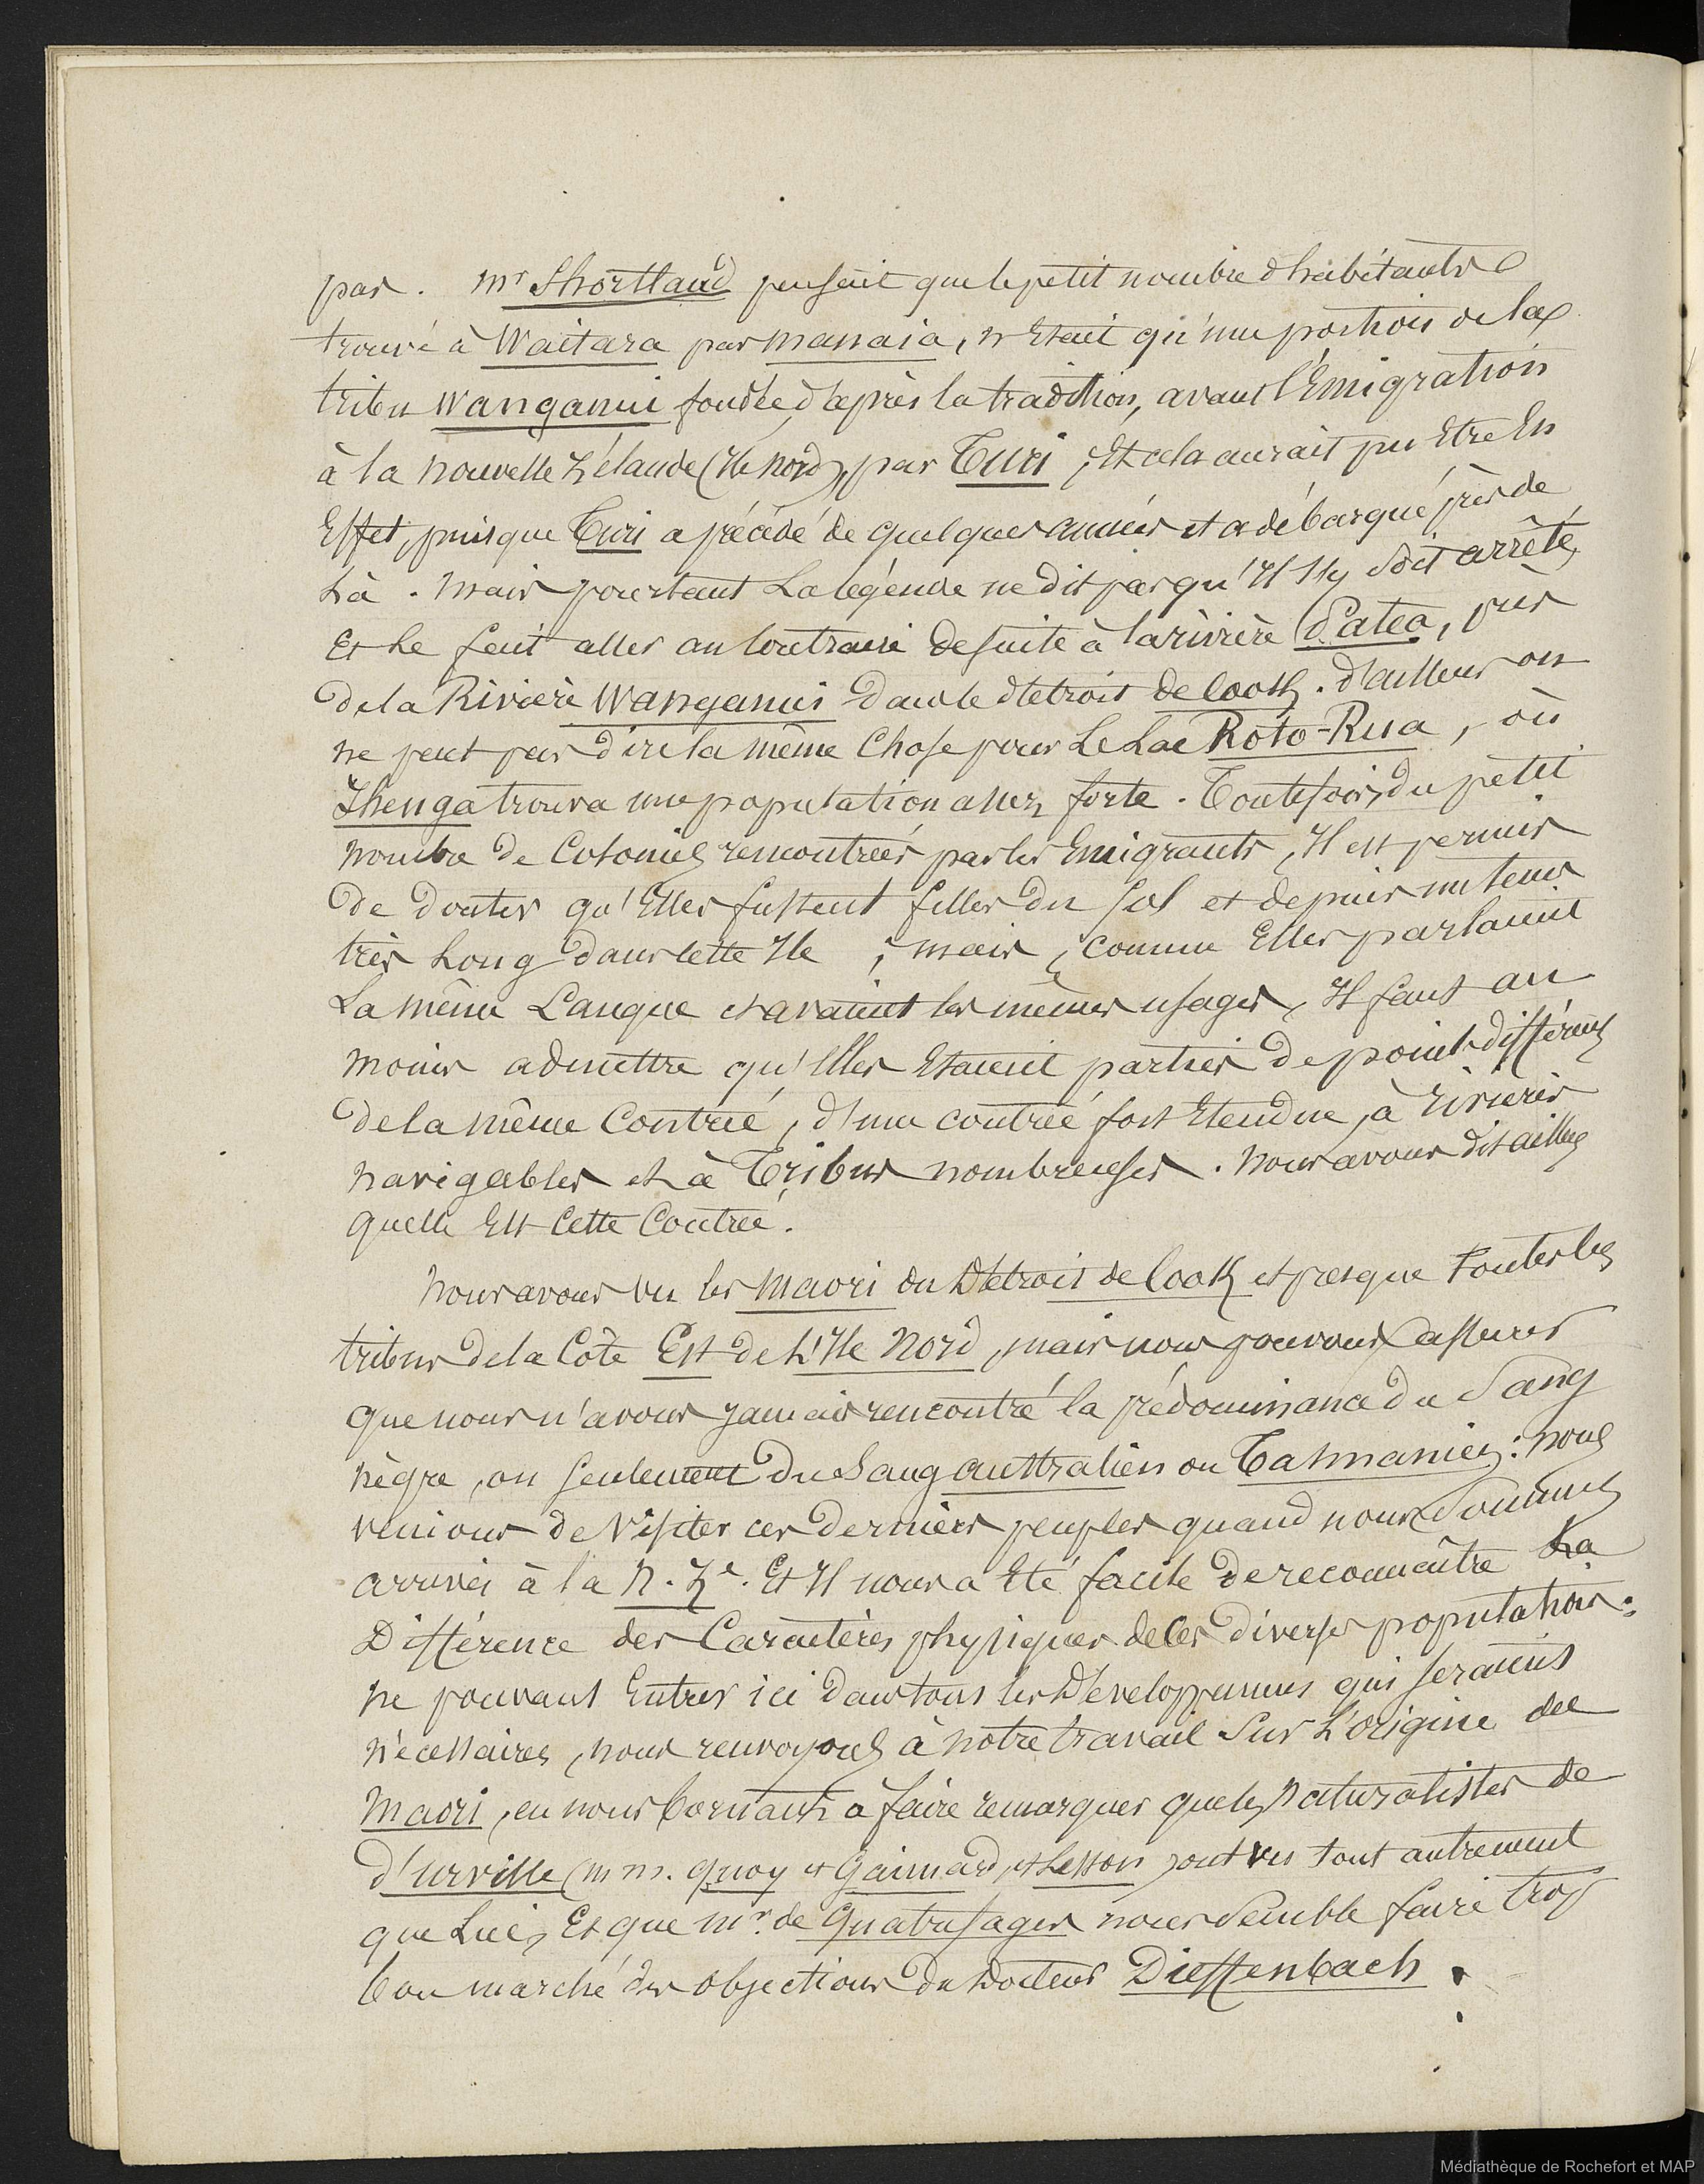 pas. Mr Shortland pensait que le petit nombre d'habitants
trouvé à Waitara par Manaia, n'Etait qu'une portion de la
tribu Wanganui fondée, d'après la tradition, avant l'Emigration
à la Nouvelle Zélande (Ile Nord), par Turi ; Et cela aurait pu Etre En
Effet, puisque Turi a précédé de quelques années et a débarqué près de
Là. Mais pourtant La légende ne dit pas qu'Il s'y soit arrêté,
Et Le fait aller au Contraire de suite à la rivière Patea, près
de la Rivière Wanganui dans le détroit de Cook. d'ailleurs on
ne peut pas dire la même Chose pour Le Lac Roto-Rua, où
Ihenga trouva une population assez forte. Toutefois, du petit
nombre de Colonies rencontrées par les Emigrants, Il est permis
de douter qu'Elles fussent filles du sol et depuis un tems
très Long dans cette Ile ; mais, comme Elles parlaient
La même Langue et avaient les mêmes usages, Il faut au
moins admettre qu'Elles Etaient parties de points différens
de la même Contrée, d'une contrée fort Etendue, à rivières
navigables et à Tribus nombreuses. Nous avons dit ailleurs
quelle Est Cette Contrée.
Nous avons vu les Maori du Détroit de Cook et presque toutes les
tribus de la Côte Est de L'Ile Nord, mais nous pouvons assurer
que nous n'avons jamais rencontré la prédominance du Sang
nègre, ou seulement du Sang australien ou Tasmanien : nous
venions de visiter ces derniers peuples quand nous sommes
arrivés à la N. Ze. Et Il nous a Eté facile de reconnaître La
Différence des Caractères physiques de Ces diverses populations.
Ne pouvant Entrer ici dans tous les Développemens qui seraient
nécessaires, nous renvoyons à notre travail Sur L'origine des
Maori, en nous bornant à faire remarquer que les Naturalistes de
d'urville (m m. Quoy et Gaimard, et Lesson) ont vu tout autrement
que Lui, Et que Mr. de Quatrefages nous Semble faire trop
bon marché des objections du Docteur Dieffenbach.
Médiathèque de Rochefort et MAP